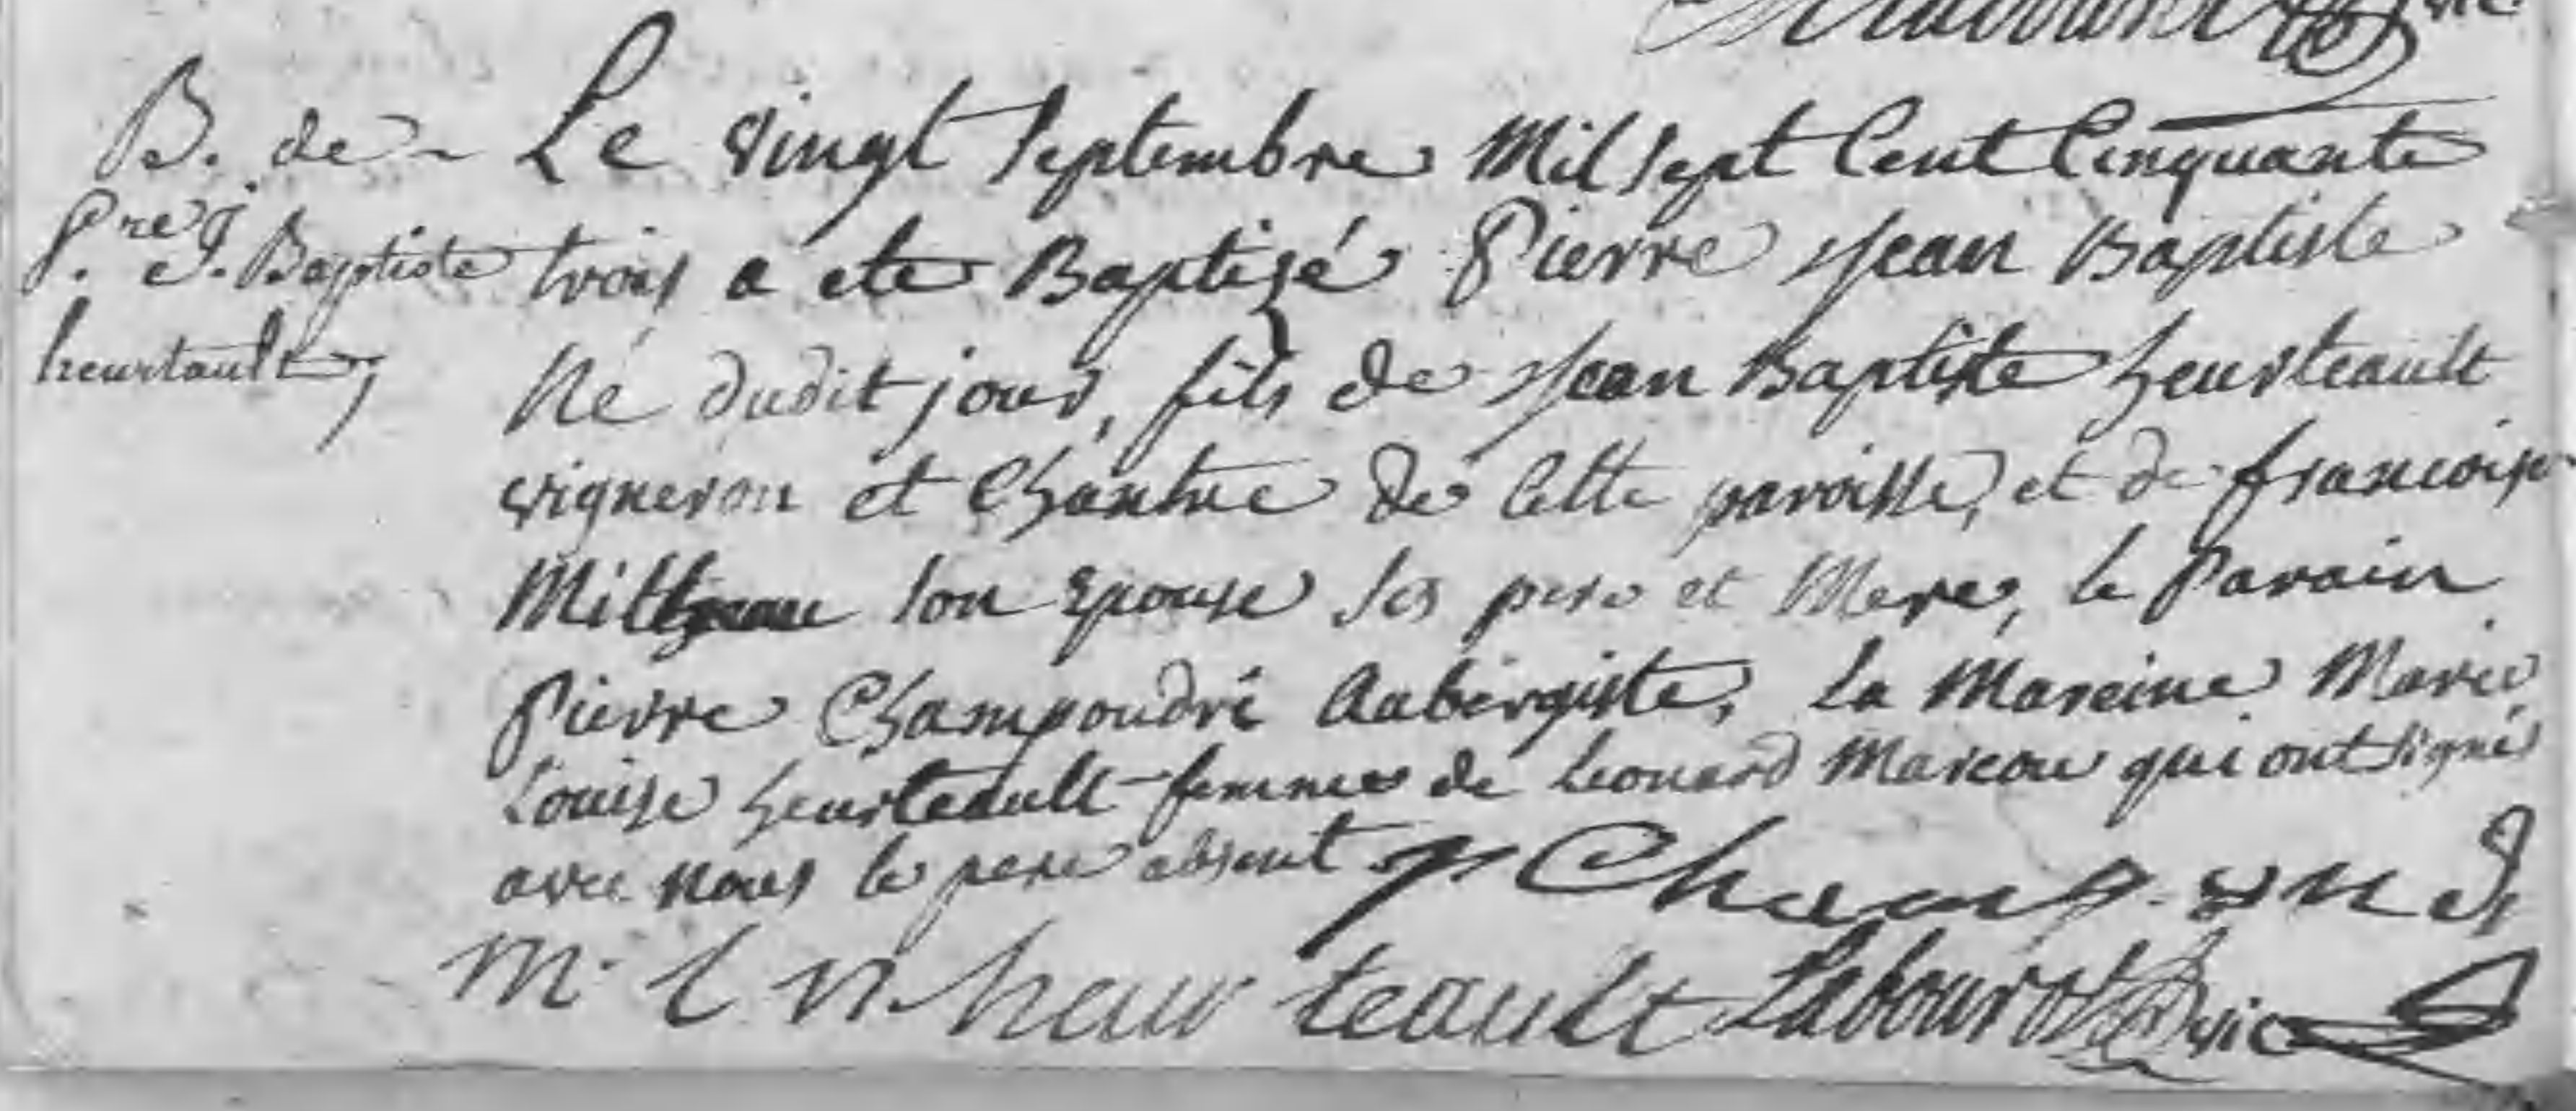 B. de
P.re J. Baptiste
heurtault,
Le vingt septembre Mil sept Cent Cinquante
trois a ete Baptizé Pierre Jean Baptiste
Né dudit jour, fils de Jean Baptiste heurteault
vigneron et Chantre de Cette paroisse, et de francoise
son Epouse ses pere et Mere, le Parain
Pierre Champoudré Aubergiste, la Mareine Marie
Louise heurteault femme de Leonard Mareau qui ont signé
avec nous le pere absent
heurteault Labourot vic